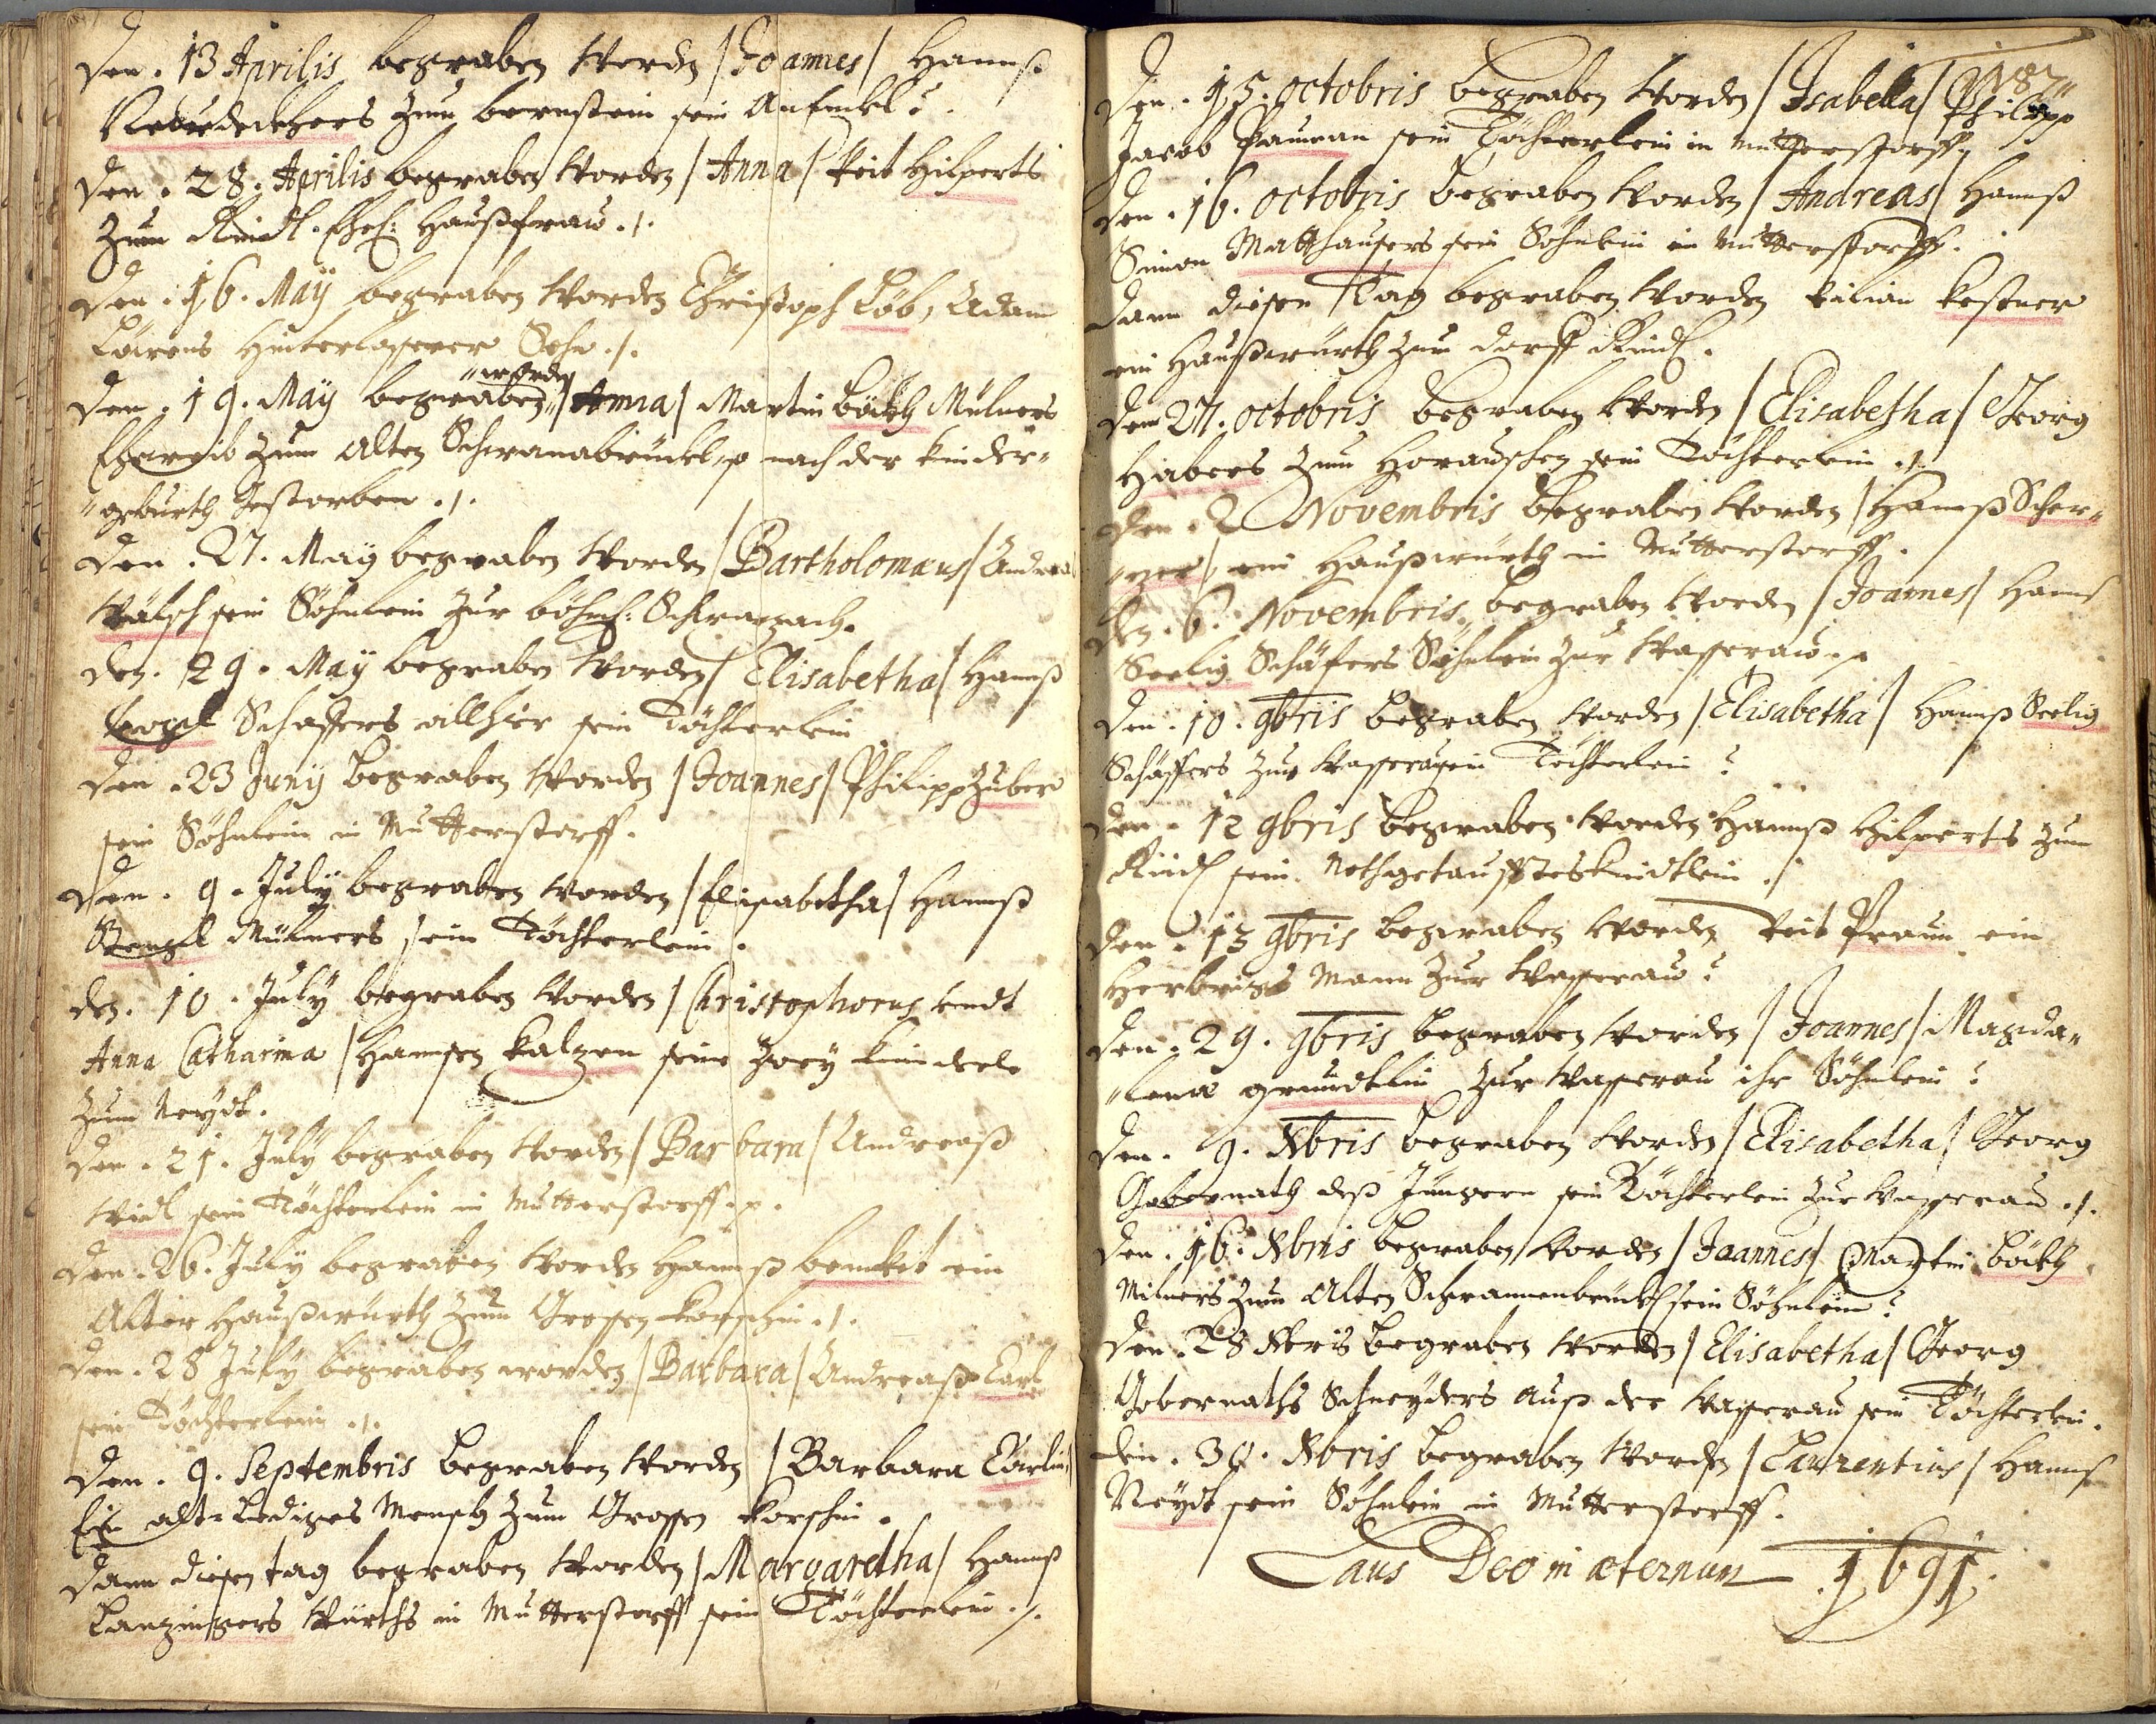 Den . 13 Aprilis begraben worden / Joannes / Hannß
zum bernstein sein Anenckl
Den . 28 . Aprilis begraben worden / Anna / Veit Hilperts
zum Rindl . Ehel: Haußfraw ./.
Den . 16 . May begraben worden Christoph Löb, Adam
Hinterlaßener Sohn ./.
"worden
Den . 19 . May begraben" / Anna / Martin Böckh Mülners
Eheweib zum alten Schwanabrückl, p nach der kinder"
"geburth gestorben ./.
Den . 27 . May begraben worden / Bartholomæus / Andrea
Wälsch sein Söhnlein zur böhm: Schwarzach.
Den . 29 . May begraben worden / Elisabetha / Hannß
Vogel Schaffers allhier sein Töchterlein
Den . 23 Juny begraben worden / Joannes / Philipp Zuber
sein Söhnlein in Mutterstorff.
Den . 9 . July begraben worden / Elisabetha / Hannß
Stengl Mülners sein Töchterlein .
Den . 10 . July begraben worden / Christophorus undt
Anna Catharina / Hannsen Kalzen seine zwey kinderle
zum Neydt.
Den . 21 . July begraben worden / Barbara / Andreaß
Widl sein Töchterlein in Mutterstorff . p .
Den . 26 . July begraben worden Hannß ein
Alter Haußwürth zum Grossen Korschin ./.
Den . 28 July begraben worden / Barbara / Andreaß Carl
sein Töchterlein ./.
Den . 9 . Septembris begraben worden / Barbara Carlin /
Ein alt-Lediges Mensch zum Grossen Korschin .
Dann diesen tag begraben worden / Margaretha / Hannß
Lanzingers Würths in Mutterstorff sein Töchterlein ./.
187"
Den . 15 . octobris begraben worden / Isabella / Philipp
Jacob Pauman sein Töchterlein in Mutterstorff
Den . 16 . octobris begraben worden / Andreas / Hannß
Simon Matthausers sein Söhnlein in Mutterstorff .
Dann diesen Tag begraben worden Kilian Kestner
ein Haußwürth zum dorff Rindl .
Den 27 . octobris begraben worden / Elisabetha / Georg
Habers zum Horauschen sein Töchterlein ./.
Den . 2 Novembris begraben worden / Hannß Scher"
ein Haußwürth in Mutterstorff .
Den . 6 . Novembris, begraben worden / Joannes / Hannß
Seelig Schäfers Söhnlein zur Wasseraw . p
Den . 10 . 9bris begraben worden / Elisabetha / Hannß Seelig
Schäffers zur Wasserau sein Töchterlein
Den . 12 9bris begraben worden Hannß Hilperts zum
Rindl sein Nothgetaufftes Kindtlein ./
Den . 13 9bris begraben worden Veit Praun ein
Herbrigs Mann zur Wasseraw
Den . 29 . 9bris begraben worden / Joannes / Magda"
"lena grundtlin zur Wasserau ihr Söhnlein
Den . 9 . Xbris begraben worden / Elisabetha / Georg
Gobernath deß Jüngern sein Töchterlein zur Wasserau ./.
Den . 16 . Xbris begraben worden / Joannes / Martin Böckh
Milners zum Alten Schwannenbrückl sein Söhnlein
Den . 28 Xbris begraben worden / Elisabetha / Georg
Gobernaths Schneyders auß der Wasserau sein Töchterlein .
Den . 30 . Xbris begraben worden / Laurentius / Hannß
Neydt sein Söhnlein in Mutterstorff .
Laus Deo in æternum 1691 .